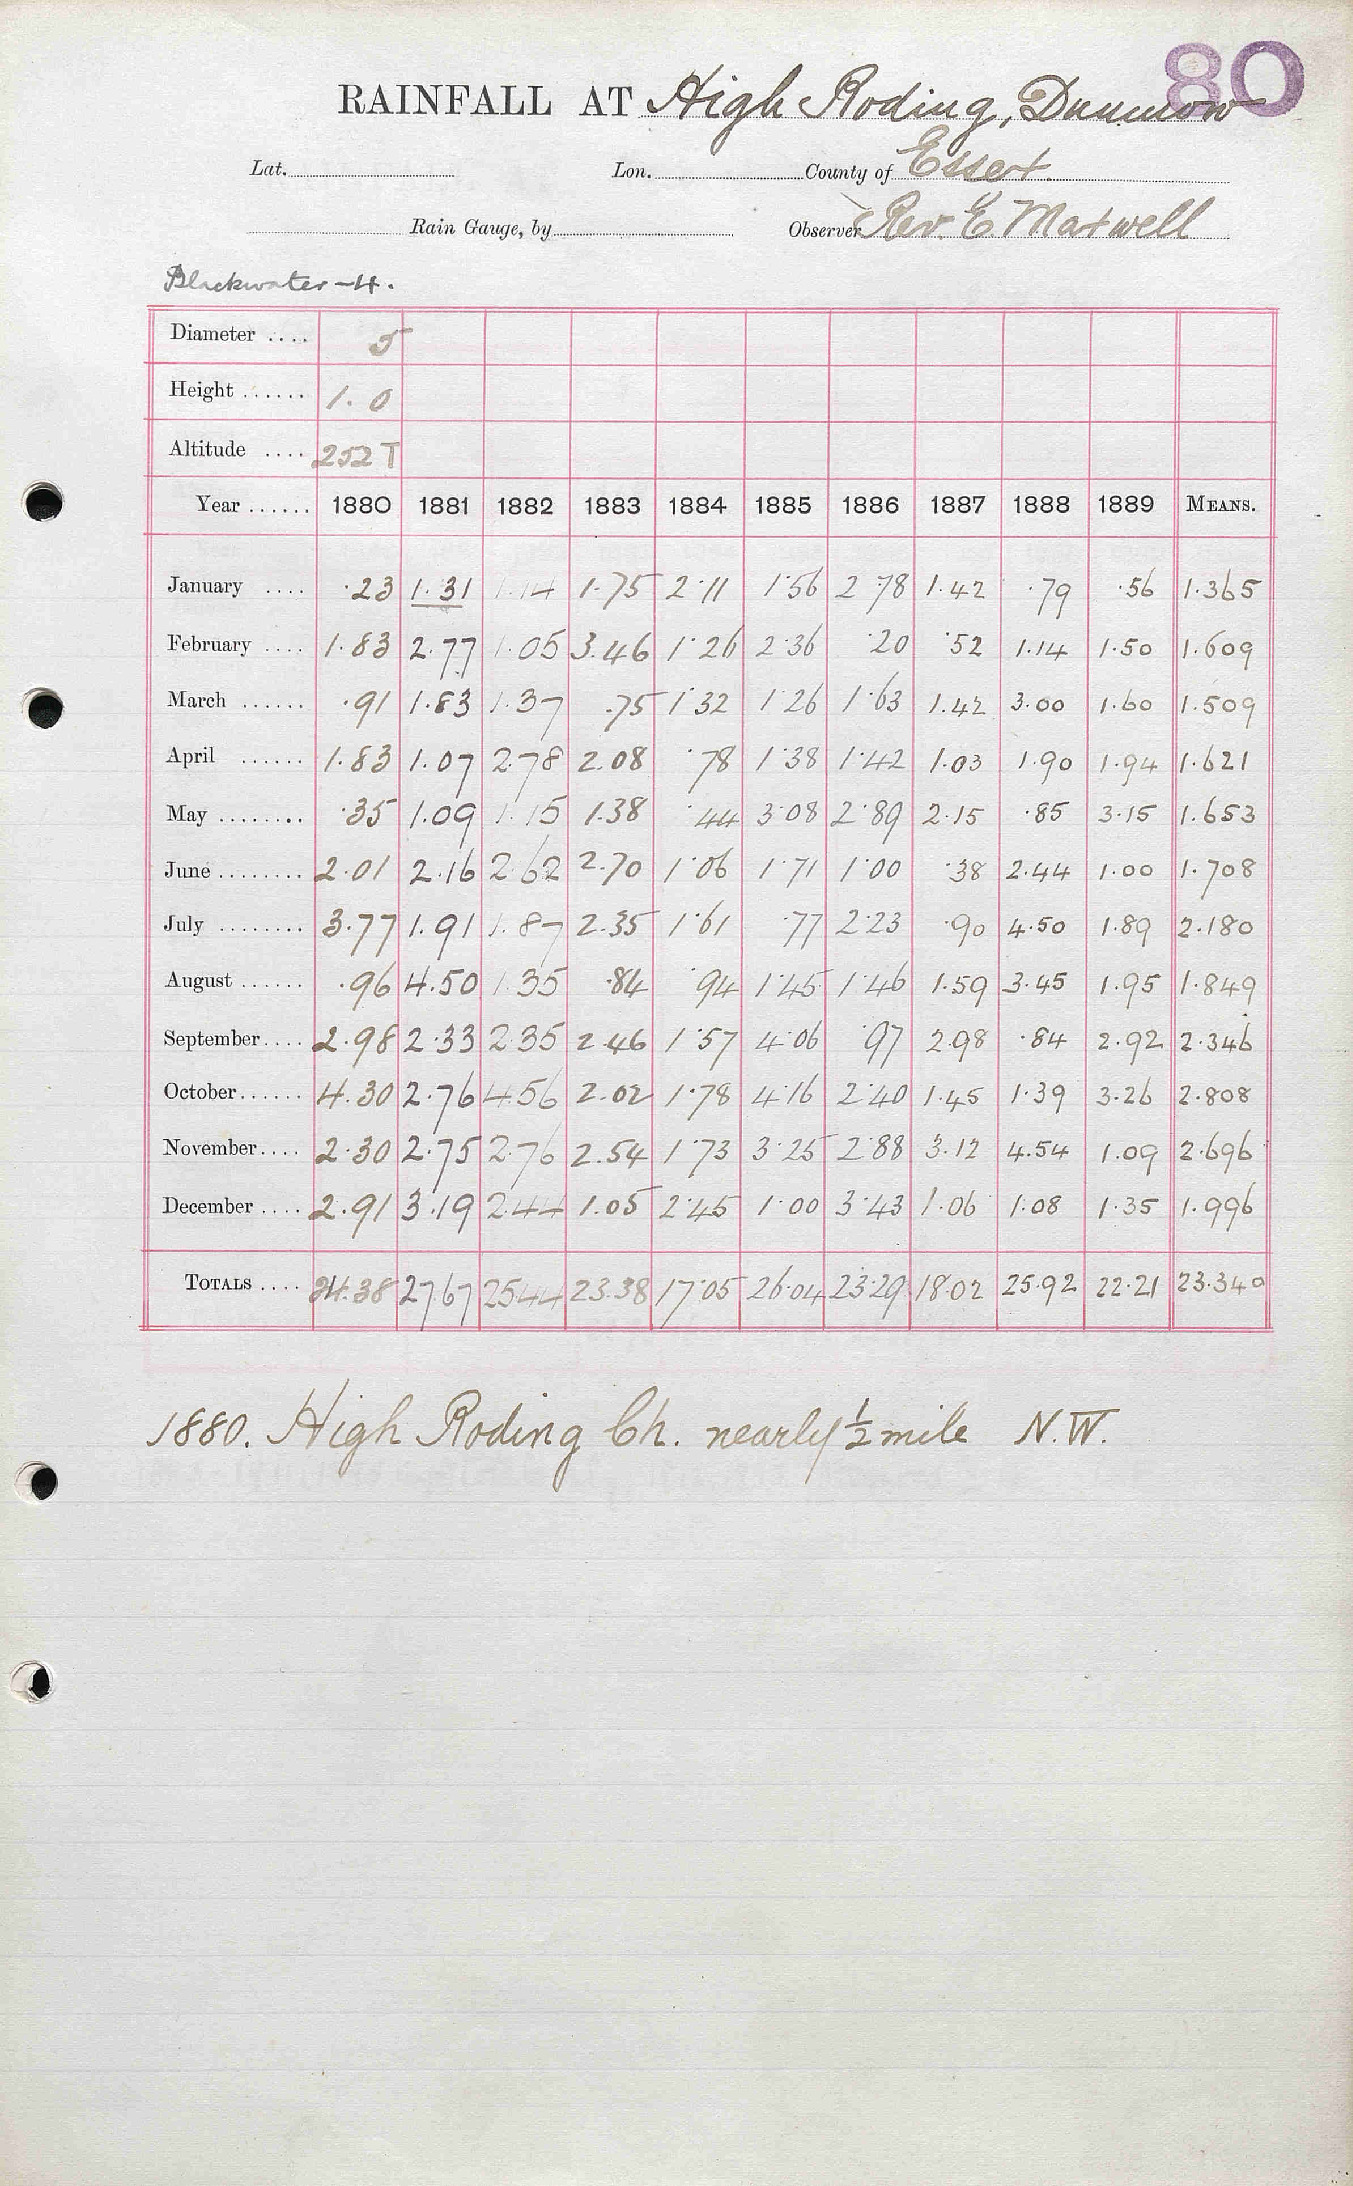 80
RAINFALL AT High Roding, Dunmow
Lat. Lon. County of Essex
Rain Gauge, by Observer Rev. E. Maxwell
Blackwater - 4.
Diameter .... 5
Height ...... 1. 0
Altitude .... 252 T
Year ...... 1880 1881 1882 1883 1884 1885 1886 1887 1888 1889 MEANS.
January .... .23 1.31 1.14 1.75 2.11 1.56 2.78 1.42 .79 .56 1.365
February .... 1.83 2.77 1.05 3.46 1.26 2.36 .20 .52 1.14 1.50 1.609
March ...... .91 1.83 1.37 .75 1.32 1.26 1.63 1.42 3.00 1.60 1.509
April ...... 1.83 1.07 2.78 2.08 .78 1.38 1.42 1.03 1.90 1.94 1.621
May ........ .35 1.09 1.15 1.38 .44 3.08 2.89 2.15 .85 3.15 1.653
June ........ 2.01 2.16 2.62 2.70 1.06 1.71 1.00 .38 2.44 1.00 1.708
July ........ 3.77 1.91 1.87 2.35 1.61 .77 2.23 .90 4.50 1.89 2.180
August ...... .96 4.50 1.35 .84 .94 1.45 1.46 1.59 3.45 1.95 1.849
September.... 2.98 2.33 2.35 2.46 1.57 4.06 .97 2.98 .84 2.92 2.346
October...... 4.30 2.76 4.56 2.02 1.78 4.16 2.40 1.45 1.39 3.26 2.808
November.... 2.30 2.75 2.76 2.54 1.73 3.25 2.88 3.12 4.54 1.09 2.696
December .... 2.91 3.19 2.44 1.05 2.45 1.00 3.43 1.06 1.08 1.35 1.996
TOTALS .... 24.38 27.67 25.44 23.38 17.05 26.04 23.29 18.02 25.92 22.21 23.340
1880. High Roding Ch. nearly ½ mile N.W.